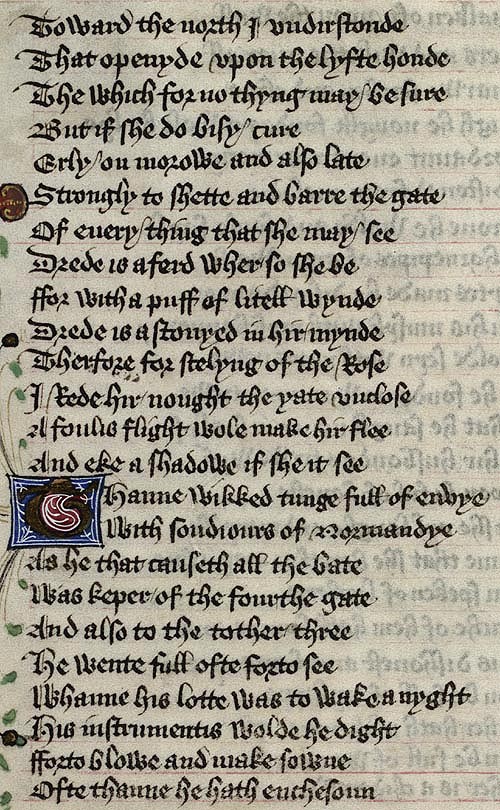 Toward the north I vndirstonde
That openyde vpon the lyfte honde
The which for no thyng may be sure
But if she do bisy cure
Erly on morowe and also late
Strongly to shette and barre the gate
Of euery thing that she may see
Drede is aferd wher so she be
ffor with a puff of litell wynde
Drede is astonyed in hir mynde
Therfore for stelyng of the Rose
I Rede hir nought the yate vnclose
A foulis flight wole make hir flee
And eke a shadowe if she it see
Thanne wikked tunge full of envye
With soudiours of Normandye
As he that causeth all the bate
Was keper of the fourthe gate
And also to the tother three
He wente full ofte forto see
Whanne his lotte was to wake a nyght
His instrumentis wolde he dight
fforto blowe and make sowne
Ofte thanne he hath enchesoun